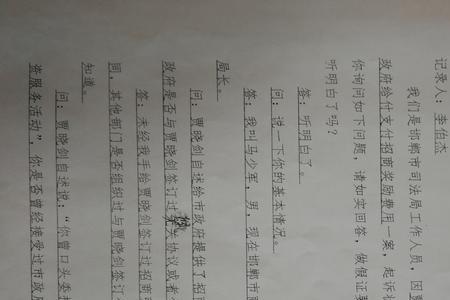 记录人：李伯杰
我们是邯郸市司法局工作人员，因
政府给付支付招商奖励费用一案，起诉
你询问如下问题，请如实回答，做假证
听明白了吗？
答：听明白了。
问：说一下你的基本情况。
答：我叫马少军，男，现在邯郸市
局长。
问：贾晓剑自述给市政府提供了招
政府是否与贾晓剑签订过协议或者
答：未经我手给贾晓剑签订过招商
同，其他部门是否组织过与贾晓剑签订
知道。
问：贾晓剑自述说：“你曾口头委
资服务活动”，你是否曾经接受过市政